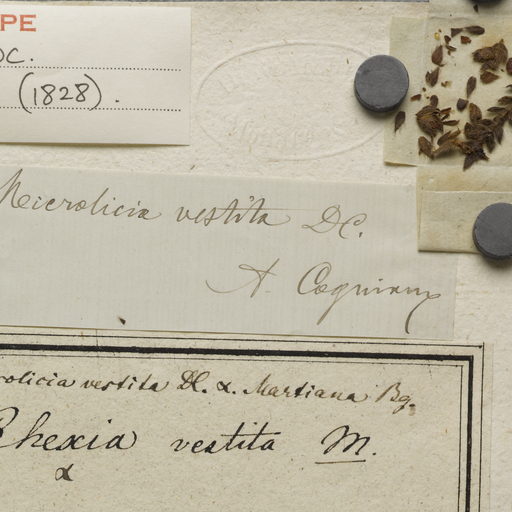 PE
DC.
(1828).
Microlicia vestita DC.
A. Cogniaux
rolicia vestita DC. α. Martiana Bg.
Rhexia vestita M.
α